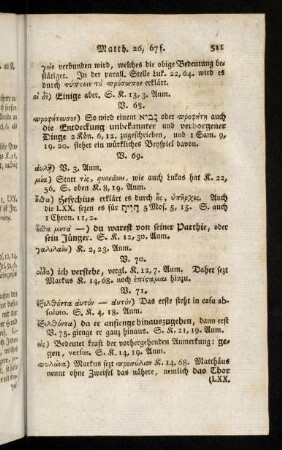 Matth. 26, 67f. 511
verbunden wird, welches die obige Bedeutung be-
stätiget. In der parall. Stelle Luk. 22, 64. wird es
durch τύπτειν το πρόσωπον erklärt.
οἱ δὲ) Einige aber. S. K. 13, 3. Anm.
V. 68.
προφήτευσον) So wird einem נביא oder προφήτη auch
die Entdeckung unbekannter und verborgener
Dinge 2 Kön. 6, 12. zugeschrieben, und 1 Sam. 9,
19. 20. stehet ein würkliches Beyspiel davon.
V. 69.
αυλῇ) V. 3. Anm.
μία) Statt τὶς, quaedam, wie auch Lukas hat K. 22,
56. S. oben K. 8, 19. Anm.
ἦσθα) Hesychius erklärt es durch ἦς, ὑπῆρχες. Auch
die LXX. sezen es für היית 5 Mos. 5, 15. S. auch
1 Chron. 11, 2.
ἦσθα μετὰ —) du warest von seiner Parthie, oder
sein Jünger. S. K. 12, 30. Anm.
γαλιλαίου) K. 2, 23. Anm.
V. 70.
οἶδα) ich verstehe, vergl. K. 12, 7. Anm. Daher sezt
Markus K. 14, 68. noch ἐπίσταμαι hinzu.
V. 71.
ἐξελθόντα αὐτὸν — αυτὸν) Das erste steht in casu ab-
soluto. S. K. 4, 18. Anm.
ἐξελθόντα) da er anfienge hinauszugehen, dann erst
V. 75. gienge er ganz hinaus. S. K. 21, 19. Anm.
εἰς) Bedeutet kraft der vorhergehenden Anmerkung: ge-
gen, versus. S. K. 14, 19. Anm.
πυλῶνα) Markus sezt προαύλιον K. 14, 68. Matthäus
nennt ohne Zweifel das nähere, nemlich das Thor
(LXX.